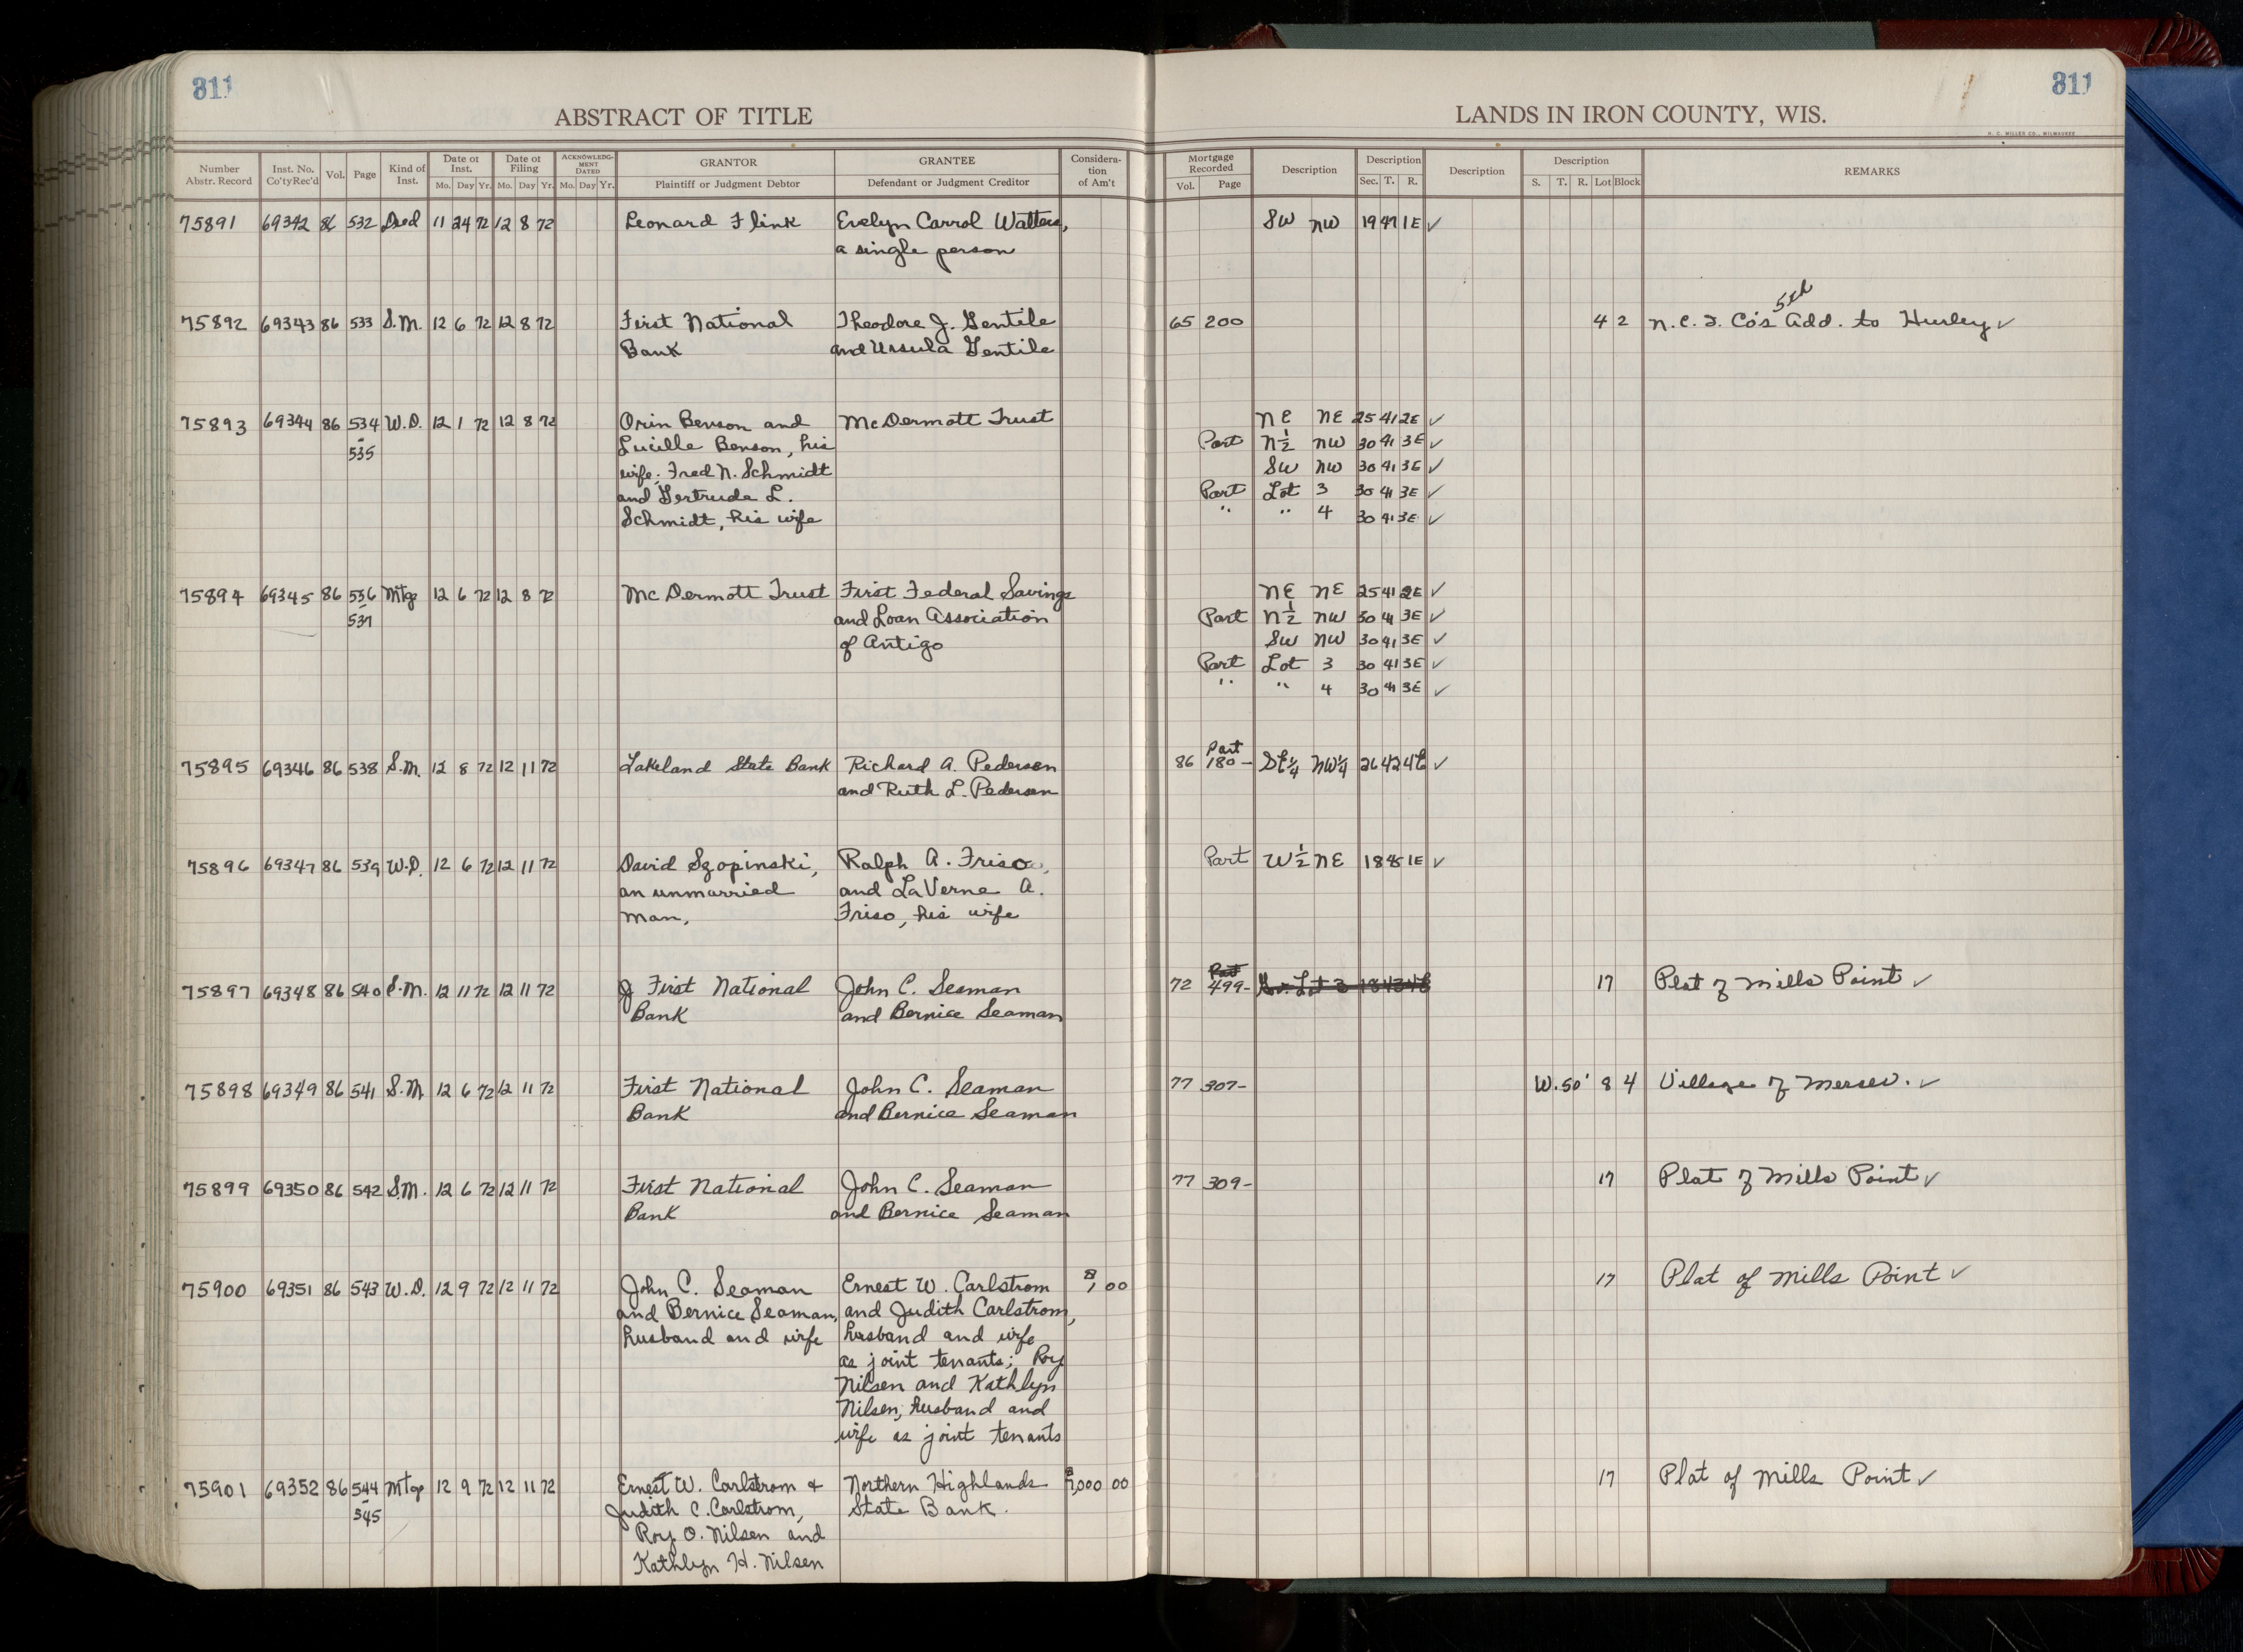 311
311
ABSTRACT OF TITLE
LANDS IN IRON COUNTY, WIS.
H. C. MILLER CO., MILWAUKEE
Number Abstr. Record | Inst. No. Co'ty Rec'd | Vol. | Page | Kind of Inst. | Date of Inst. Mo. Day Yr. | Date of Filing Mo. Day Yr. | ACKNOWLEDGMENT DATED Mo. Day Yr. | GRANTOR Plaintiff or Judgment Debtor | GRANTEE Defendant or Judgment Creditor | Consideration of Am't | Mortgage Recorded Vol. Page | Description | Description Sec. T. R. | Description | Description S. T. R. Lot Block | REMARKS
75891 69342 86 532 Deed 11 24 72 12 8 72 Leonard Flink Evelyn Carrol Watters, SW NW 19 47 1E ✓
a single person
75892 69343 86 533 S.M. 12 6 72 12 8 72 First National Theodore J. Gentile 65 200 4 2 N.C.I. Co's 5th Add. to Hurley ✓
Bank and Ursula Gentile
75893 69344 86 534 W.D. 12 1 72 12 8 72 Orin Benson and McDermott Trust NE NE 25 41 2E ✓
- 535 Lucille Benson, his Part N½ NW 30 41 3E ✓
wife; Fred N. Schmidt SW NW 30 41 3E ✓
and Gertrude L. Part Lot 3 30 41 3E ✓
Schmidt, his wife " " 4 30 41 3E ✓
75894 69345 86 536 Mtge 12 6 72 12 8 72 McDermott Trust First Federal Savings NE NE 25 41 2E ✓
- 537 and Loan Association Part N½ NW 30 41 3E ✓
of Antigo SW NW 30 41 3E ✓
Part Lot 3 30 41 3E ✓
" " 4 30 41 3E ✓
75895 69346 86 538 S.M. 12 8 72 12 11 72 Lakeland State Bank Richard A. Pedersen 86 Part 180- SE¼ NW¼ 26 42 4E ✓
and Ruth L. Pedersen
75896 69347 86 539 W.D. 12 6 72 12 11 72 David Szopinski, Ralph A. Friso, Part W½ NE 18 1E ✓
an unmarried and LaVerne A.
man, Friso, his wife
75897 69348 86 540 S.M. 12 11 72 12 11 72 First National John C. Seaman 72 Part 499- Gov. Lot 3 18 43 4E 17 Plat of Mills Point ✓
Bank and Bernice Seaman
75898 69349 86 541 S.M. 12 6 72 12 11 72 First National John C. Seaman 77 307- W. 50' 8 4 Village of Mercer. ✓
Bank and Bernice Seaman
75899 69350 86 542 S.M. 12 6 72 12 11 72 First National John C. Seaman 77 309- 17 Plat of Mills Point ✓
Bank and Bernice Seaman
75900 69351 86 543 W.D. 12 9 72 12 11 72 John C. Seaman Ernest W. Carlstrom 00 17 Plat of Mills Point ✓
and Bernice Seaman, and Judith Carlstrom,
husband and wife husband and wife
as joint tenants; Roy
Nilsen and Kathlyn
Nilsen, husband and
wife as joint tenants
75901 69352 86 544 Mtge 12 9 72 12 11 72 Ernest W. Carlstrom & Northern Highlands 00 17 Plat of Mills Point ✓
- 545 Judith C. Carlstrom, State Bank.
Roy O. Nilsen and
Kathlyn H. Nilsen